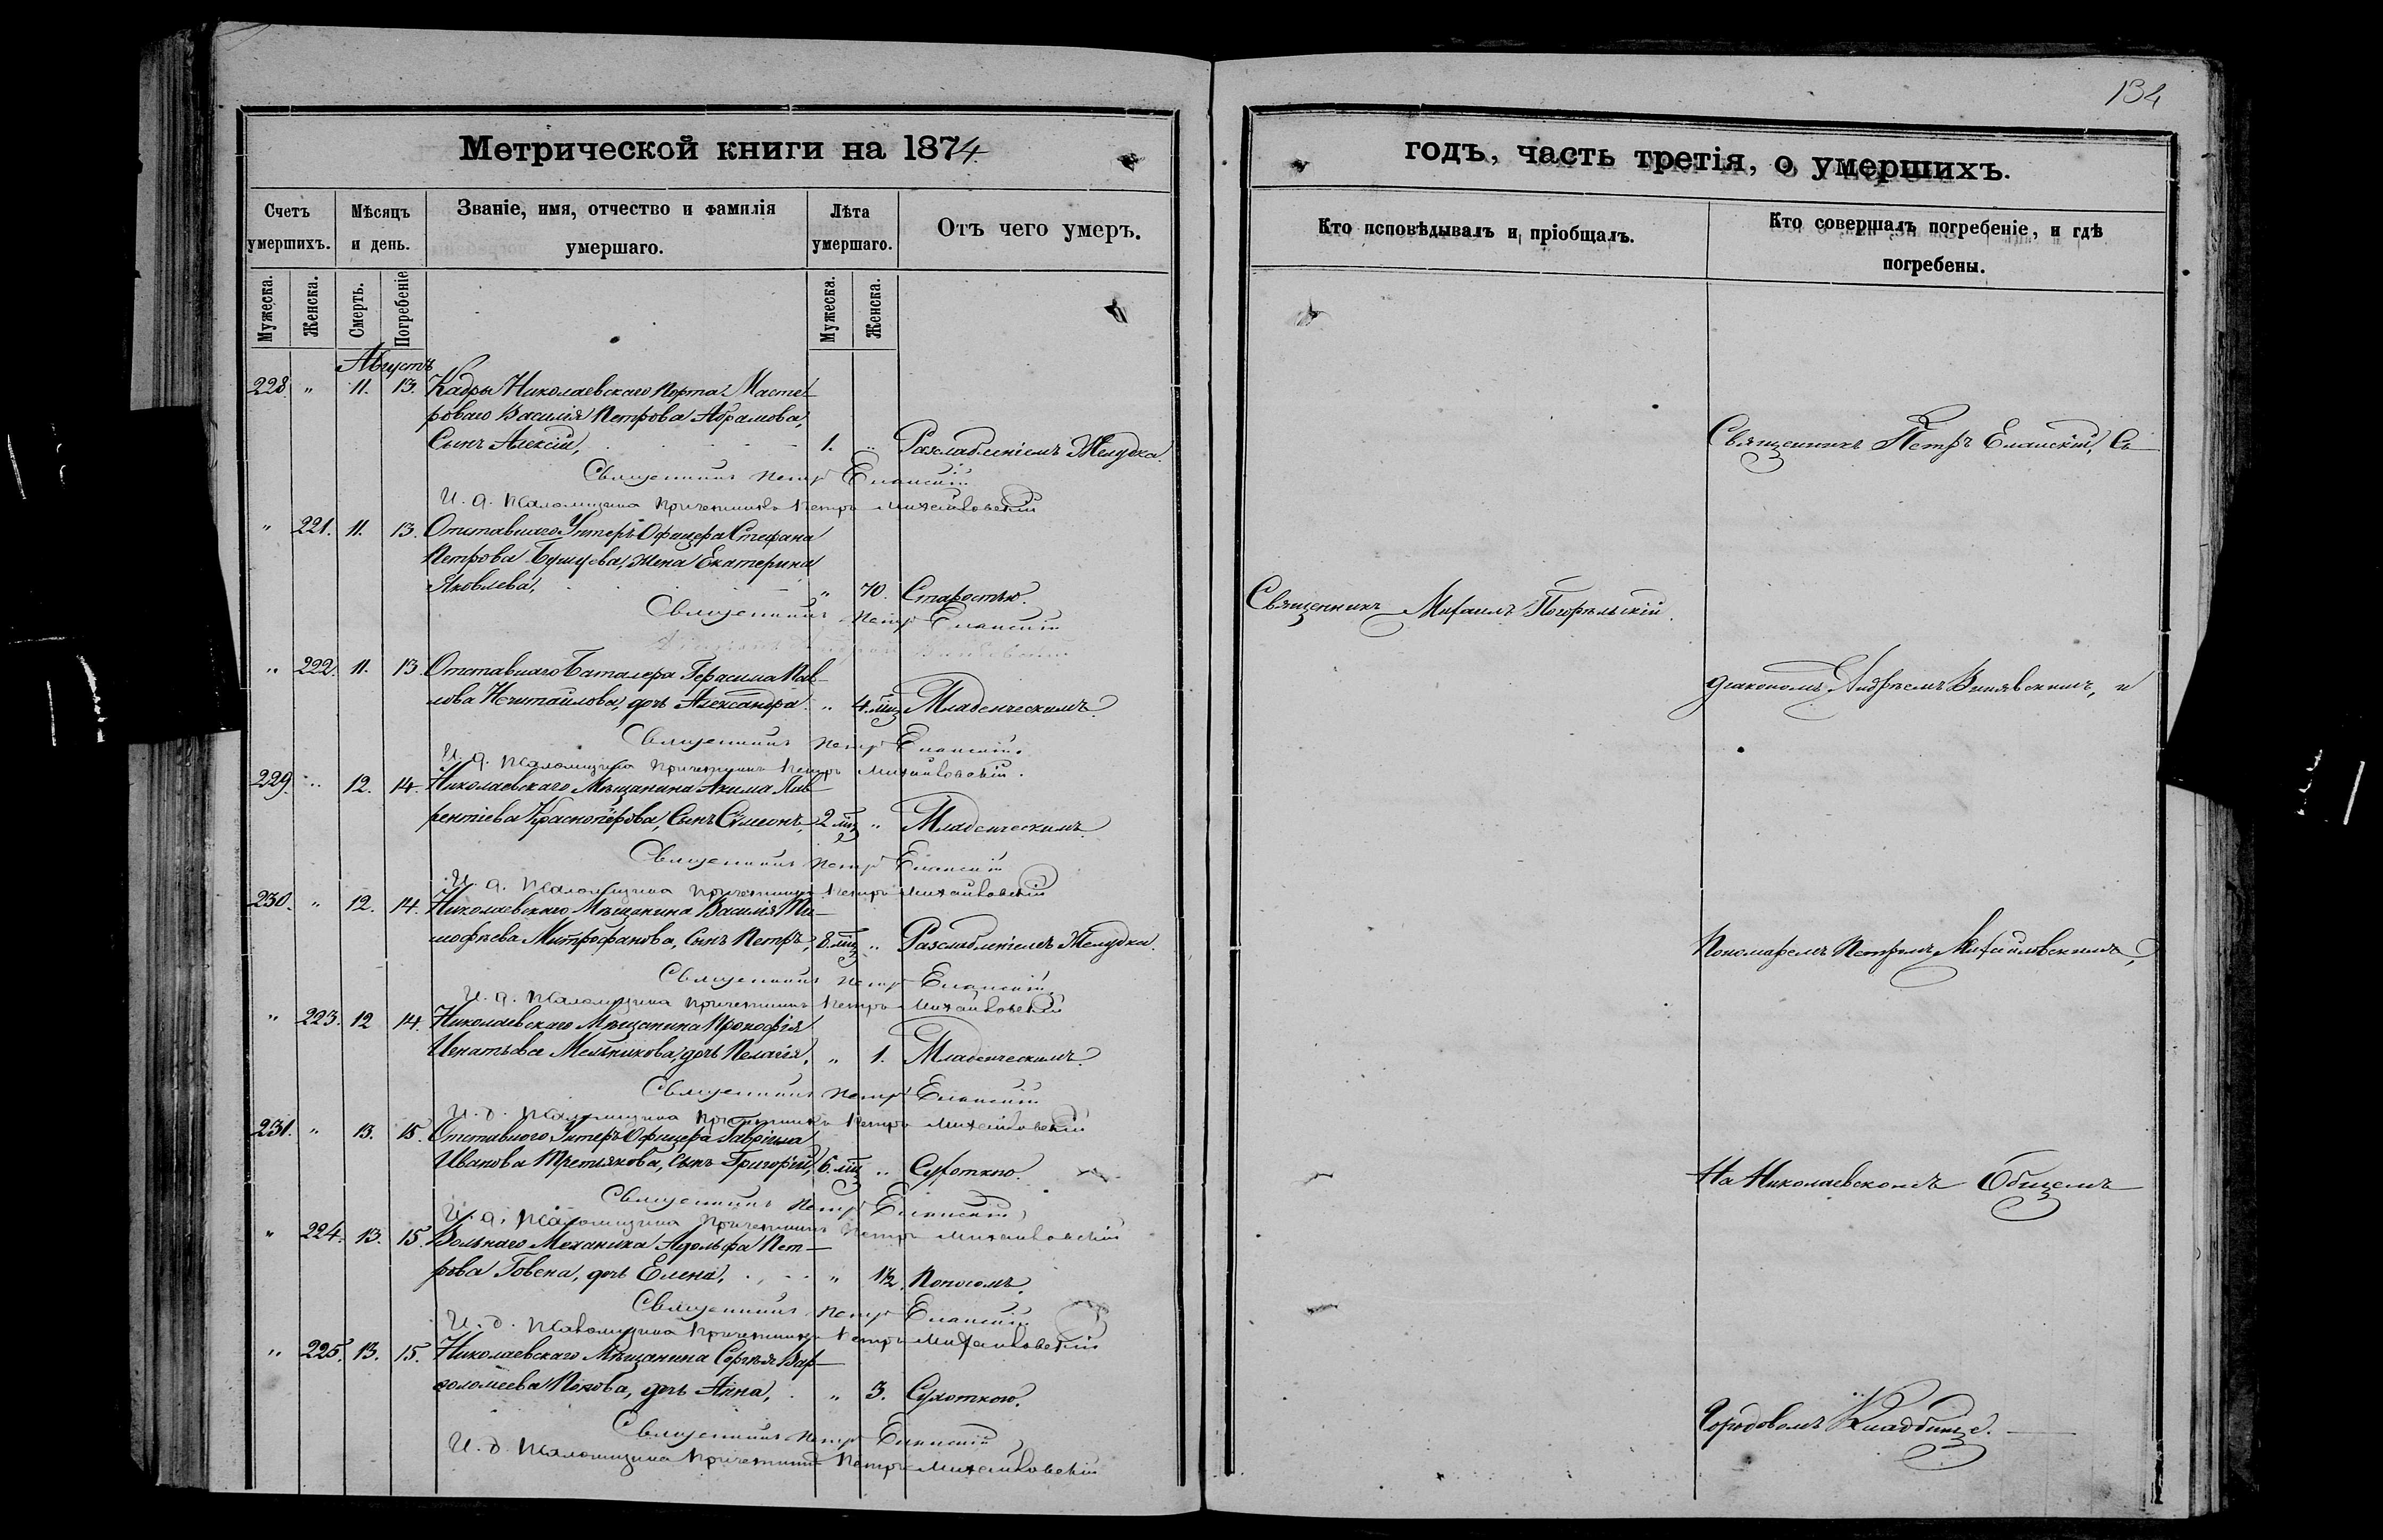 134
Метрической книги на 1874
годъ, часть третія, о умершихъ.
Счетъ умершихъ.
Мѣсяцъ и день.
Званіе, имя, отчество и фамилія умершаго.
Лѣта умершаго.
Отъ чего умеръ.
Кто исповѣдывалъ и пріобщалъ.
Кто совершалъ погребеніе, и гдѣ погребены.
Мужеска.
Женска.
Смерть.
Погребеніе
Мужеска.
Женска.
Августъ
228 " 11. 13. Кадры Николаевскаго Порта Масте-
роваго Василія Петрова Абрамова,
Сынъ Алексій, 1. " Разслабленіемъ Желудка.
Священникъ Петръ Еланскій
И. д. Псаломщика Причетникъ Петръ Михайловскій
" 221. 11. 13. Отставнаго Унтеръ Офицера Стефана
Петрова, жена Екатерина
Яковлева, " 70. Старостью.
Священникъ Петръ Еланскій
" 222. 11. 13. Отставнаго Баталера Герасима Пав-
лова Нечитайлова, дочь Александра " 4. мѣц Младенческимъ.
Священникъ Петръ Еланскій.
И. д. Псаломщика Причетникъ Петръ Михайловскій.
229. " 12. 14. Николаевскаго Мѣщанина Акима Лав-
рентіева Красноперова, Сынъ Сѵмеонъ, 2 мѣц " Младенческимъ.
Священникъ Петръ Еланскій
И. д. Псаломщика Причетникъ Петръ Михайловскій
230. " 12. 14. Николаевскаго Мѣщанина Василія Ти-
мофѣева Митрофанова, Сынъ Петръ, 8. мѣц " Разслабленіемъ Желудка.
Священникъ Петръ Еланскій
И. д. Псаломщика Причетникъ Петръ Михайловскій
" 223. 12 14. Николаевскаго Мѣщанина Прокофія
Игнатьева Мельникова, дочь Пелагія, " 1. Младенческимъ.
Священникъ Петръ Еланскій
И. д. Псаломщика Причетникъ Петръ Михайловскій
231. " 13. 15. Отставного Унтеръ Офицера Гавріила
Иванова Третьякова, Сынъ Григорій, 6. мѣц " Сухоткою.
Священникъ Петръ Еланскій
И. д. Псаломщика Причетникъ Петръ Михайловскій
" 224. 13. 15. Вольнаго Механика Адольфа Пет-
рова Говена, дочь Елена, " 1½. Поносомъ.
Священникъ Петръ Еланскій
И. д. Псаломщика Причетникъ Петръ Михайловскій
" 225. 13. 15. Николаевскаго Мѣщанина Сергѣя Вар-
ѳоломеева Попова, дочь Анна, " 3. Сухоткою.
Священникъ Петръ Еланскій
И. д. Псаломщика Причетникъ Петръ Михайловскій
Священникъ Михаилъ Погорѣльскій.
Священникъ Петръ Еланскій, Съ
діакономъ Андреемъ, и
Пономаремъ Петромъ Михайловскимъ,
На Николаевскомъ Общемъ
Городовомъ Кладбищѣ.